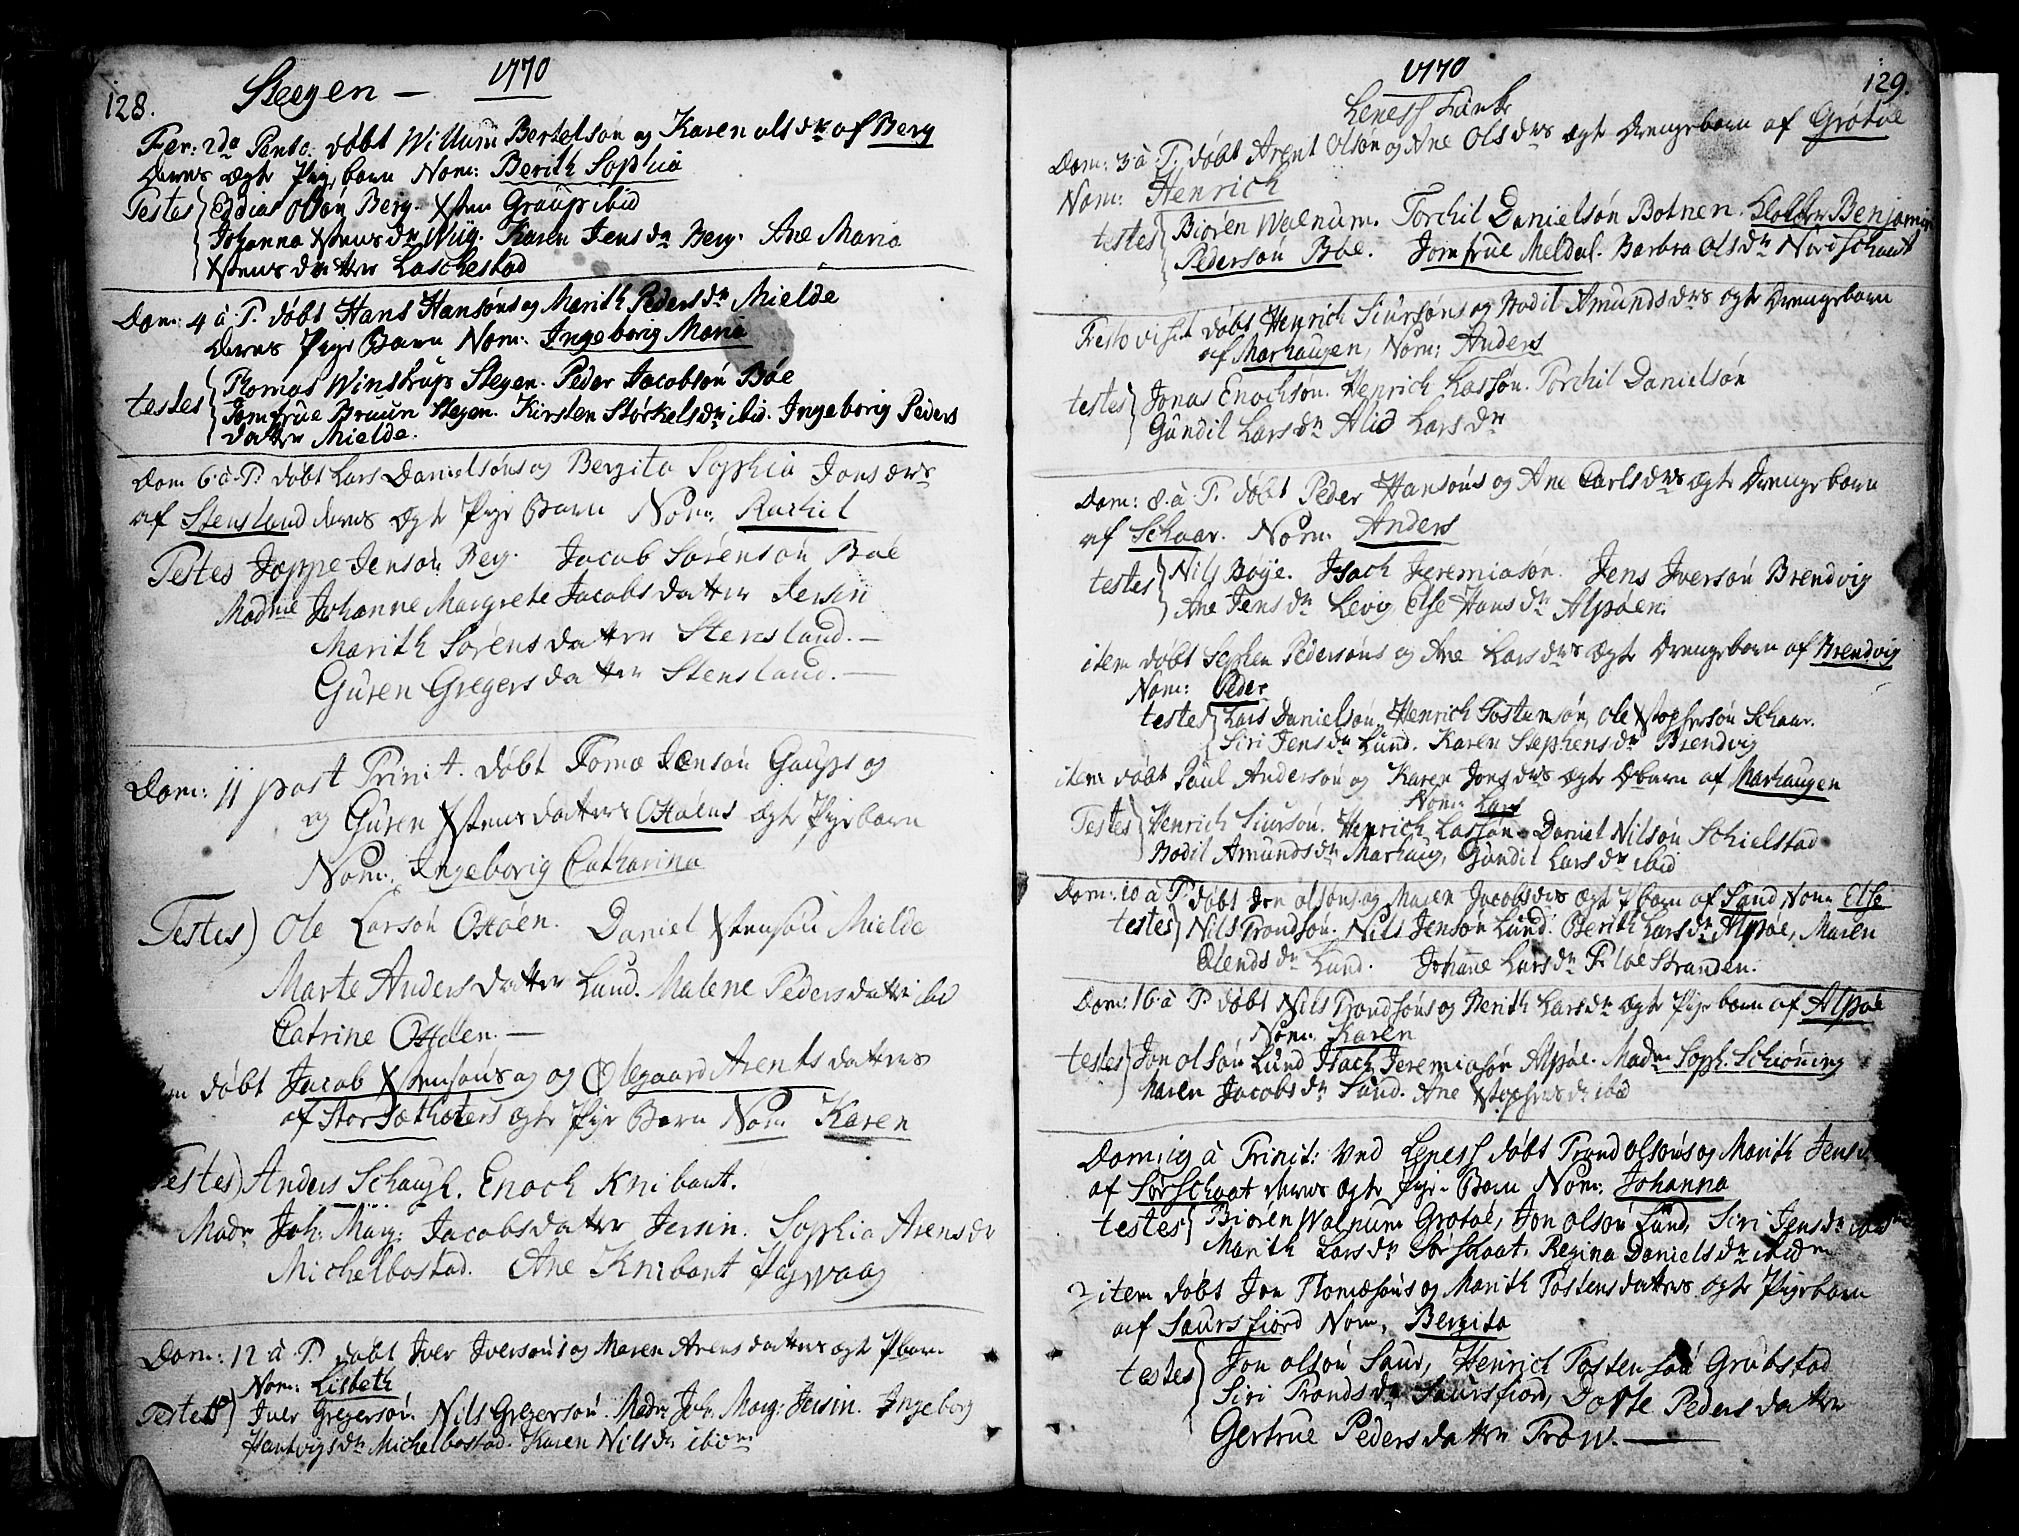 128.
Steegen — 1770
Fer: 2da Pentc: døbt Willum Bertelsøn og Karen olsdr af Berg
Deres ægte Pige barn Nom: Berith Sophia
Testes Olsøn Berg. Xsten Graup ibid
Johanna Xstensdr Wiig. Karen Jensdr Berg. Ane Maria
Xstensdatter Laschestad
Dom: 4 à P. døbt Hans Hansøns og Marith Pedersdr Mielde
Deres Pige Barn Nom: Ingeborig Maria
testes Thomas Winstrup Stegen. Peder Jacobsøn Bøe
Jomfrue Bruun Stegen. Kirsten Størkelsdr ibid. Ingeborig Peders
datter Mielde.
Dom 6 à P. døbt Lars Danielsøns og Bergita Sophia Jonsdrs
af Stensland deres ægte Pige Barn Nom: Rachel
Testes Joppe Jensøn Berg. Jacob Sørensøn Bøe
Madme Johanne Margrete Jacobsdatter Jersin
Marith Sørensdatter Stensland. —
Guren Gregersdatter Stensland. —
Dom: 11 post Trinit. døbt Tomæ Jensøn Gaups og
og Guren Xstensdatters Ottøens ægte Pigebarn
Nom. Ingeborig Catharina
Testes) Ole Larsøn Ottøen. Daniel Xstensøn Mielde
Marte Andersdatter Lund. Malene Pedersdatter ibid
Catrine Ottøen. —
døbt Jacob Xstensøns og og Olegaard Arentsdatters
af Storsæthoters ægte Pige Barn Nom Karen
Testes) Anders Schaugh. Enoch Knibant.
Madr Joh: Marg: Jacobsdatter Jersin. Sophia Arensdr
Michelbostad. Ane Knibant
Dom: 12 à P. døbt Iver Iversøns og Maren Arensdatters ægte Pbarn
Nom: Lisbeth
Testes) Iver Gregersøn. Nils Gregersøn. Madr Joh. Marg: Jersin. Ingeborg
Hartvigsdr Michelbostad. Karen Nilsdr ibidm
1770 129.
Leness
Dom: 3 à P. døbt Arent Olsøn og Ane Olsdrs ægte Drengebarn af Grøtøe
Nom: Henrich
testes Biøren Walnum. Torchil Danielsøn Botnen. Klokker Benjamin
Pedersøn Bøe. Jomfrue Meldal. Barbra Olsdr Nordschaat
Festo visit døbt Henrich Siursøns og Bodil Amundsdrs ægte Drengebarn
af Marhaugen, Nom: Anders
testes Jonas Enochsøn. Henrich Lassøn. Torchil Danielsøn
Gundil Larsdr Alid Larsdr
Dom: 8 à P. døbt Peder Hansøns og Ane Carlsdrs ægte Drengebarn
af Schaar. Nom: Anders
testes Nils Bøye. Isach Jeremiasøn. Jens Iversøn Brendvig
Ane Jensdr Levig Else Hansdr Alpøen.
item døbt Stephen Pedersøns og Ane Larsdrs ægte Drengebarn af Brendvig
Nom: Peder
testes Lars Danielsøn. Henrich Tostensøn, Ole Xstophersøn Schaar.
Siri Jensdr Lund. Karen Stephensdr Brendvig
item døbt Paul Andersøn og Karen Jonsdrs ægte Dbarn af Marhaugen
Nom: Lars
Testes Henrich Siursøn. Henrich Lassøn. Daniel Nilsøn Schielstad
Bodil Amundsdr Marhaug, Gundil Larsdr ibid
Dom: 10 à P. døbt Jon olsøns og Maren Jacobsdrs ægte Pbarn af Sand, Nom Else
testes Nils Trondsøn. Nils Jensøn Lund. Berith Larsdr Alpøe, Maren
Ølendsdr Lund. Johanne Larsdr Stranden.
Dom: 16 à P. døbt Nils Trondsøns og Berith Larsdr ægte Pige barn af Alpøe
Nom. Karen
testes Jon olsøn Lund Isach Jeremiasøn Alpøe. Madm Soph. Schiøning
Maren Jacobsdr Sand. Ane Xstophersdr ibid
Dom: 19 à Trinit: ved Leness døbt Trond olsøns og Marith Jens
af Sørschaat deres ægte Pige Barn Nom: Johanna
testes Biøren Walnum Grøtøe, Jon olsøn Lund, Siri Jensdr
Marith Larsdr Sørschaat, Regina Danielsdr ibidm
2 item døbt Jon Thomæsøns og Marith Tostensdatters ægte Pigebarn
af Saursfiord Nom. Bergita
testes Jon olsøn Saur, Henrich Tostensøn Grøbstad
Siri Trondsdr Saursfiord, Dorte Pedersdatter
Gertrue Pedersdatter Trøw. —